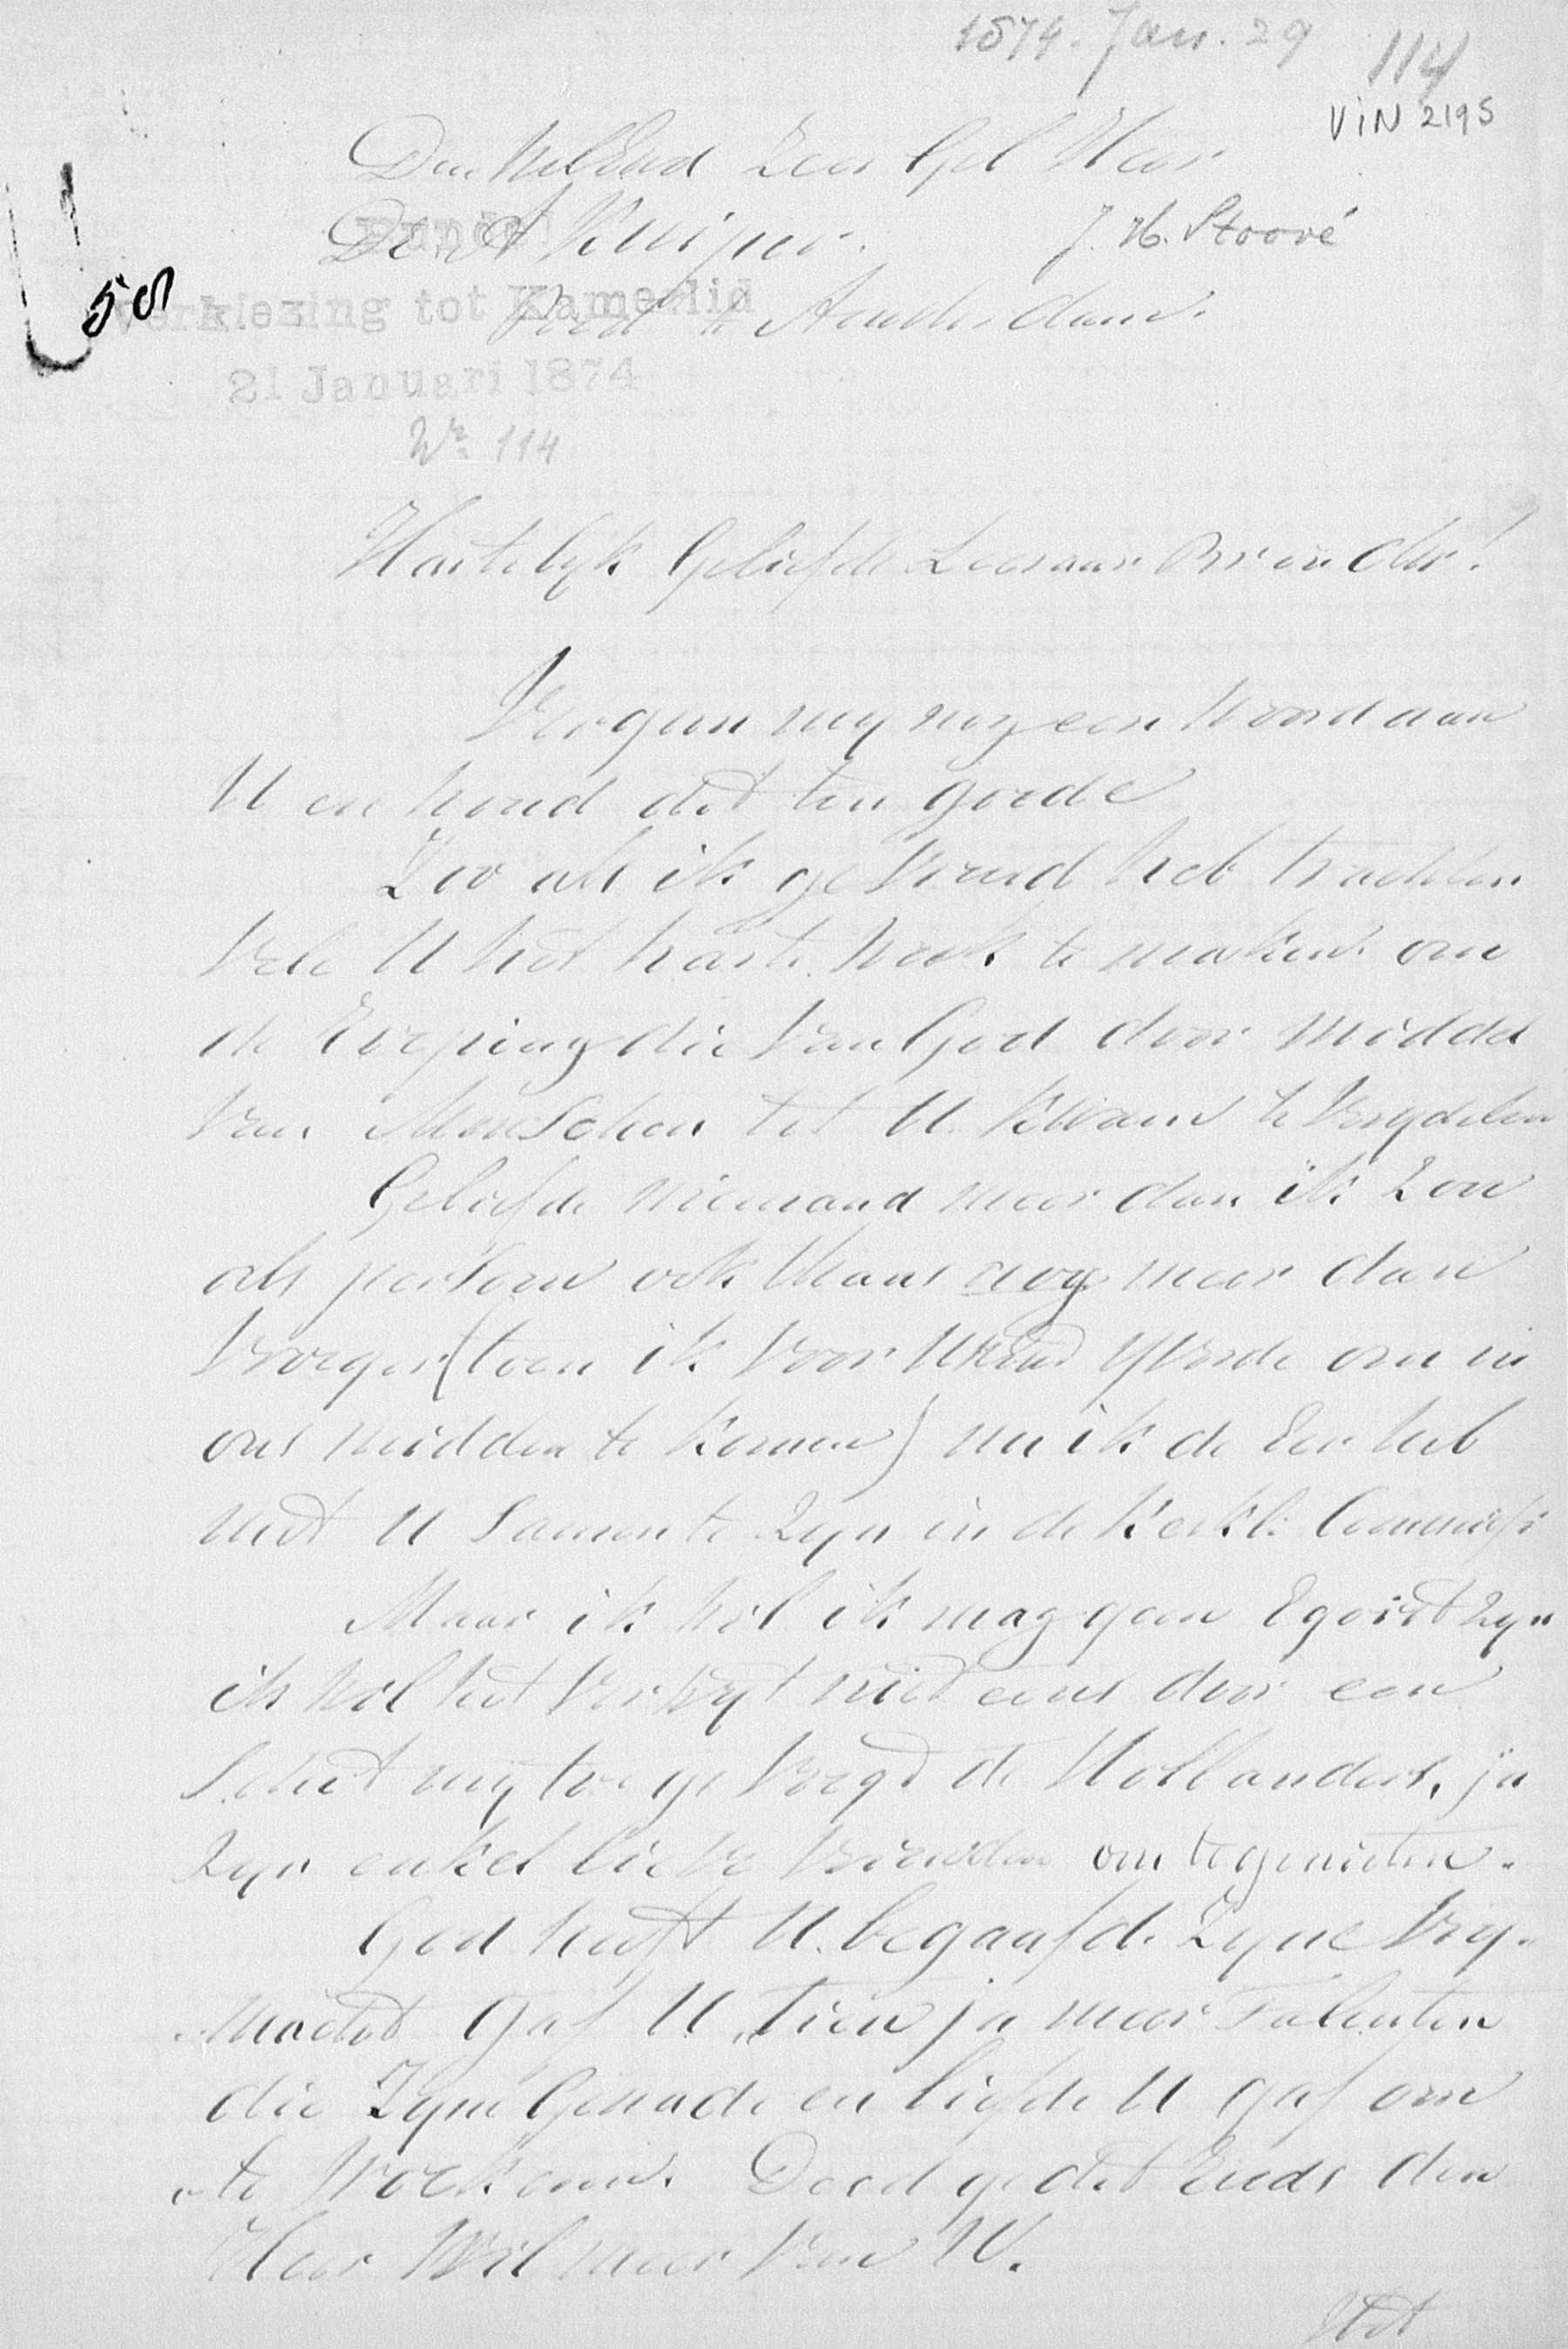 1874. Jan. 29
114
VIN 2195
Den WelEerw Zeer Gel Heer
Dr A Kuijper.
J. H. Stoové
Bundel
Verkiezing tot Kamerlid
58
Pred te Amsterdam.
21 Januari 1874
No. 114
Hartelyk Geliefde Leeraar Broeder!
Vergun my nog een woord aan
U en houd dit ten goede
Zoo als ik gehoord heb trachten
vele U het harte week te maken om
de Roeping die van God door middel
van Menschen tot U kwam te verydelen
Geliefde niemand meer dan ik zou
als persoon ook thans nog meer dan
vroeger (toen ik voor UEerw yverde om in
ons midden te komen) nu ik de Eer heb
met U samen te zyn in de Kerkl. Commissi
Maar ik wil ik mag geen Egoist zyn
ik wil het verwyt niet eens door een
Schot my toegevoegd de Hollanders, ja
zyn enkel lieve vrienden om te genieten.
God heeft U. begaafd. Zyne vry-
macht gaf U tien ja meer Talenten
die Zyne Genade en liefde U gaf om
te woekeren. Deed ge dit reeds den
Heer Wil meer van U.
Het